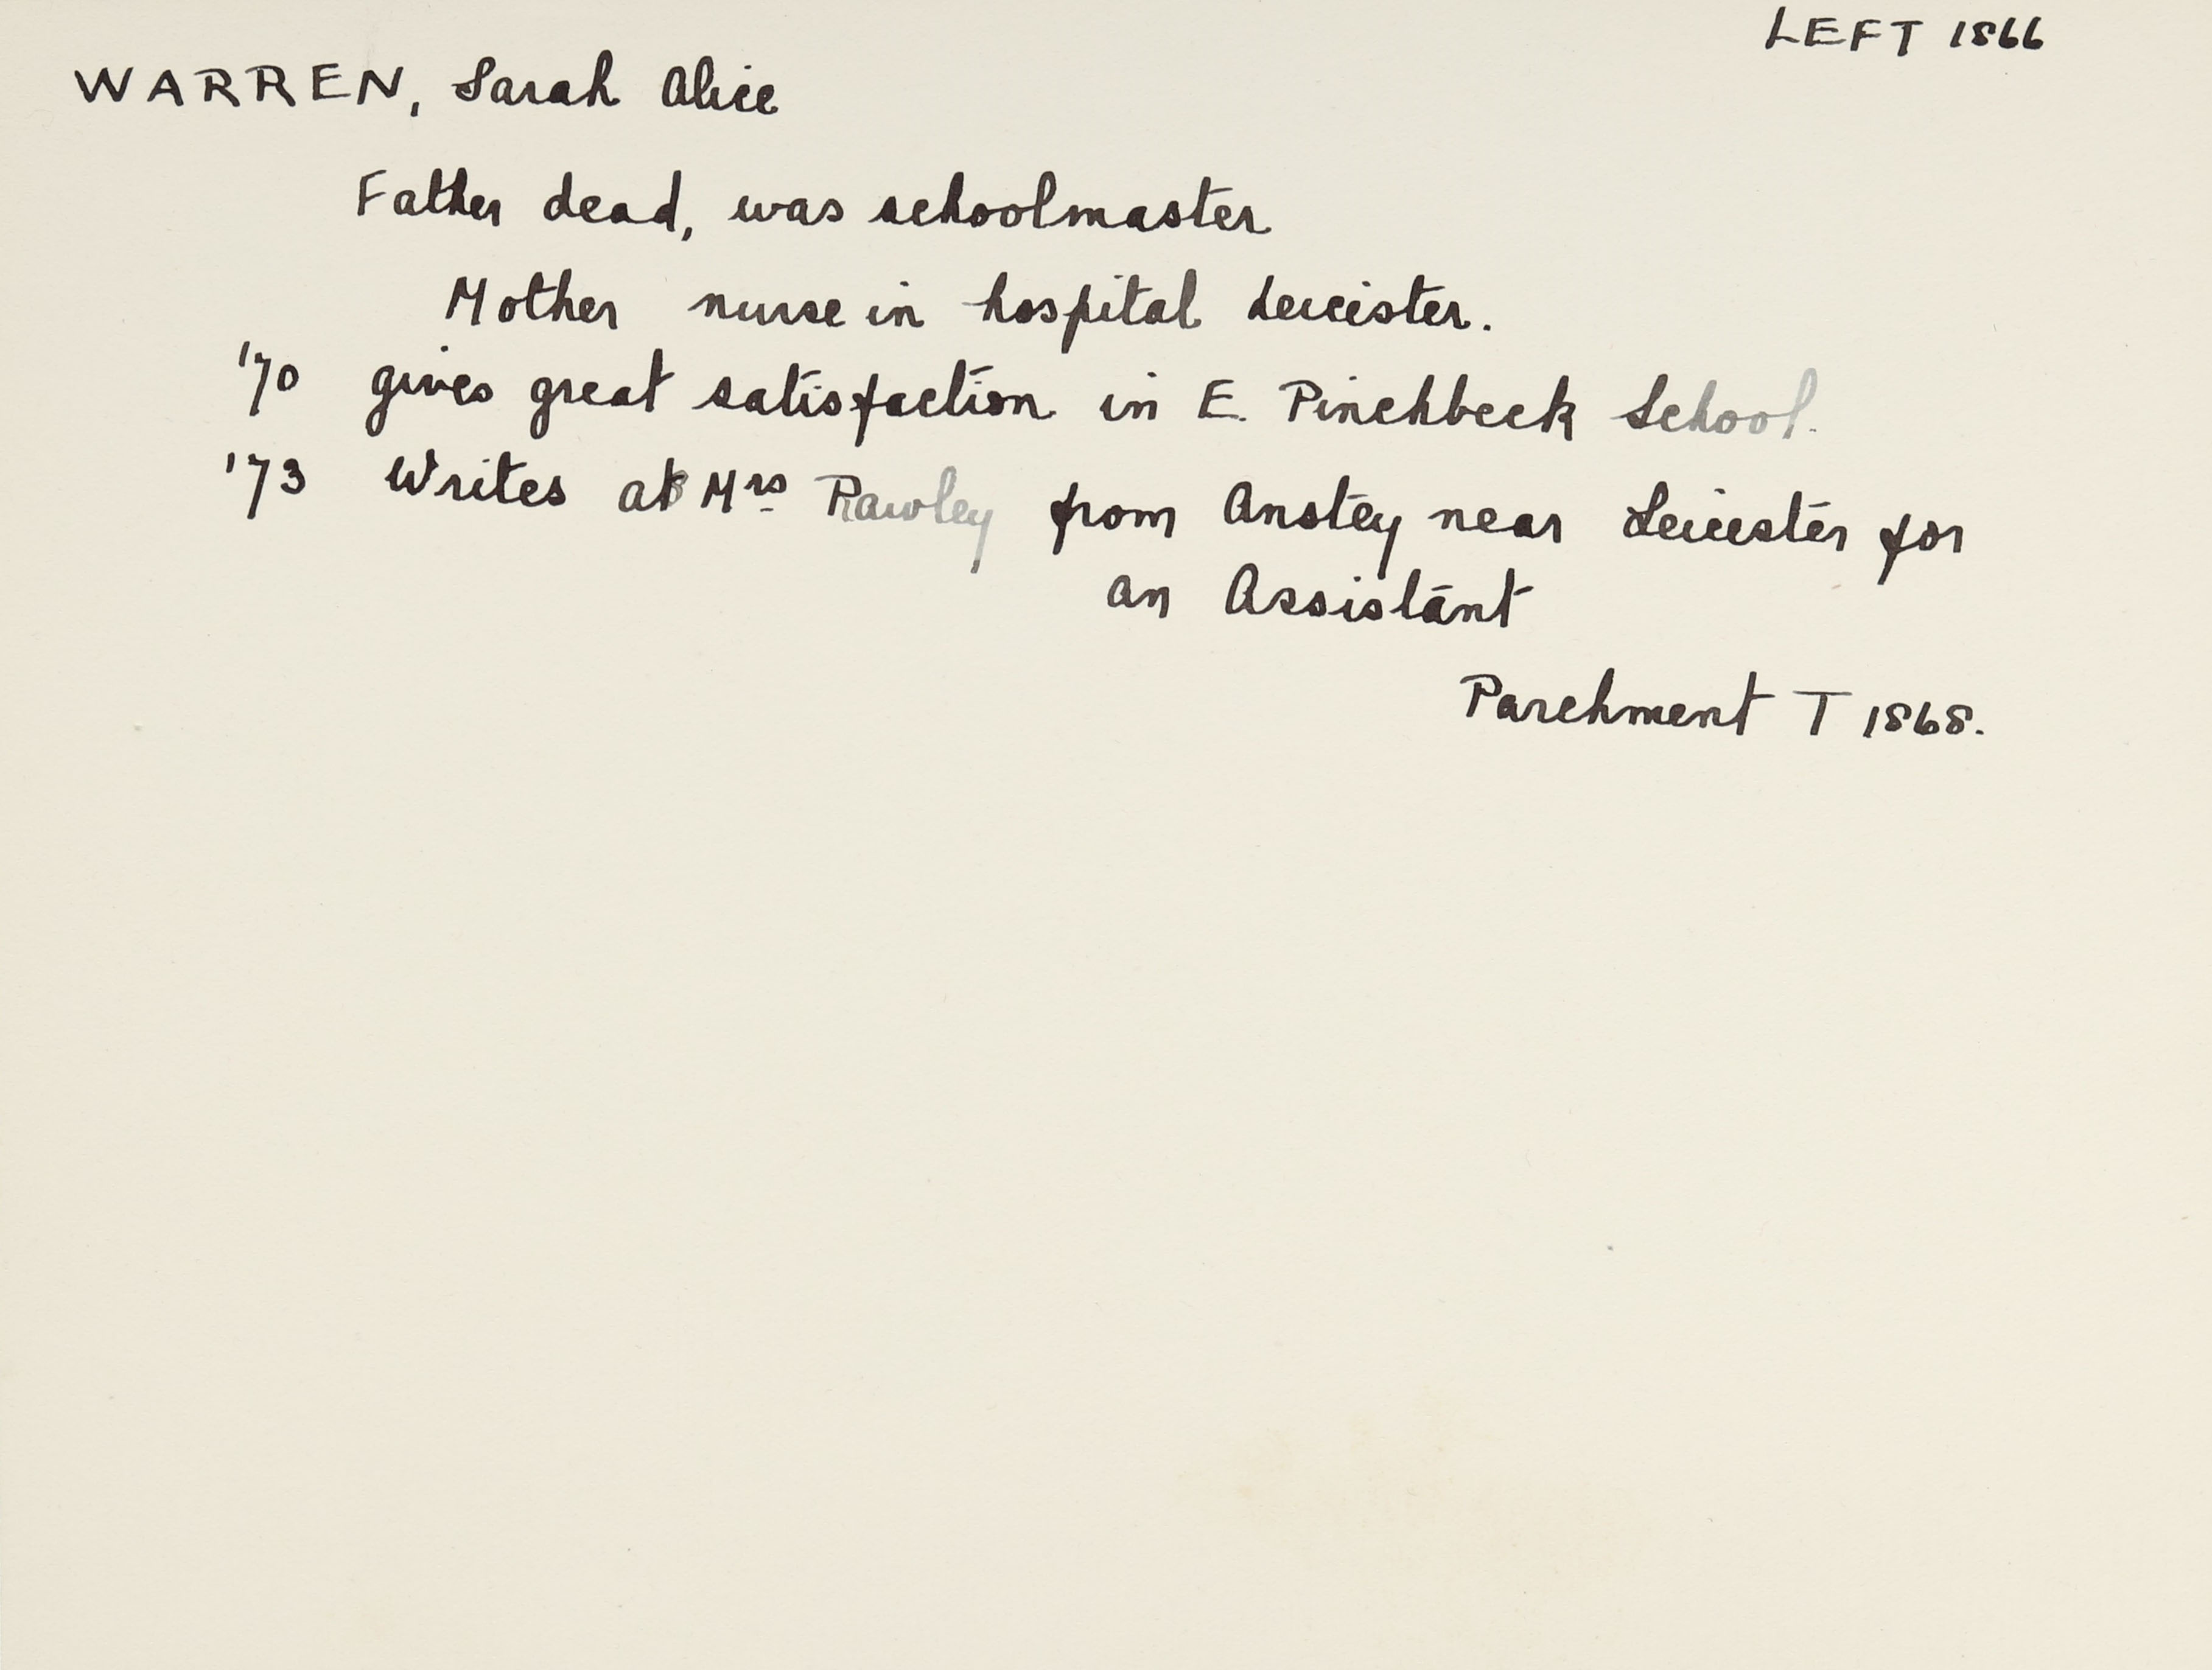 LEFT 1866
WARREN, Sarah Alice
Father dead, was schoolmaster
Mother nurse in hospital Leicester.
'70 gives great satisfaction in E. Pinchbeck School.
'73 Writes as Mrs Rawley from Anstey near Leicester for
an Assistant
Parchment T 1868.